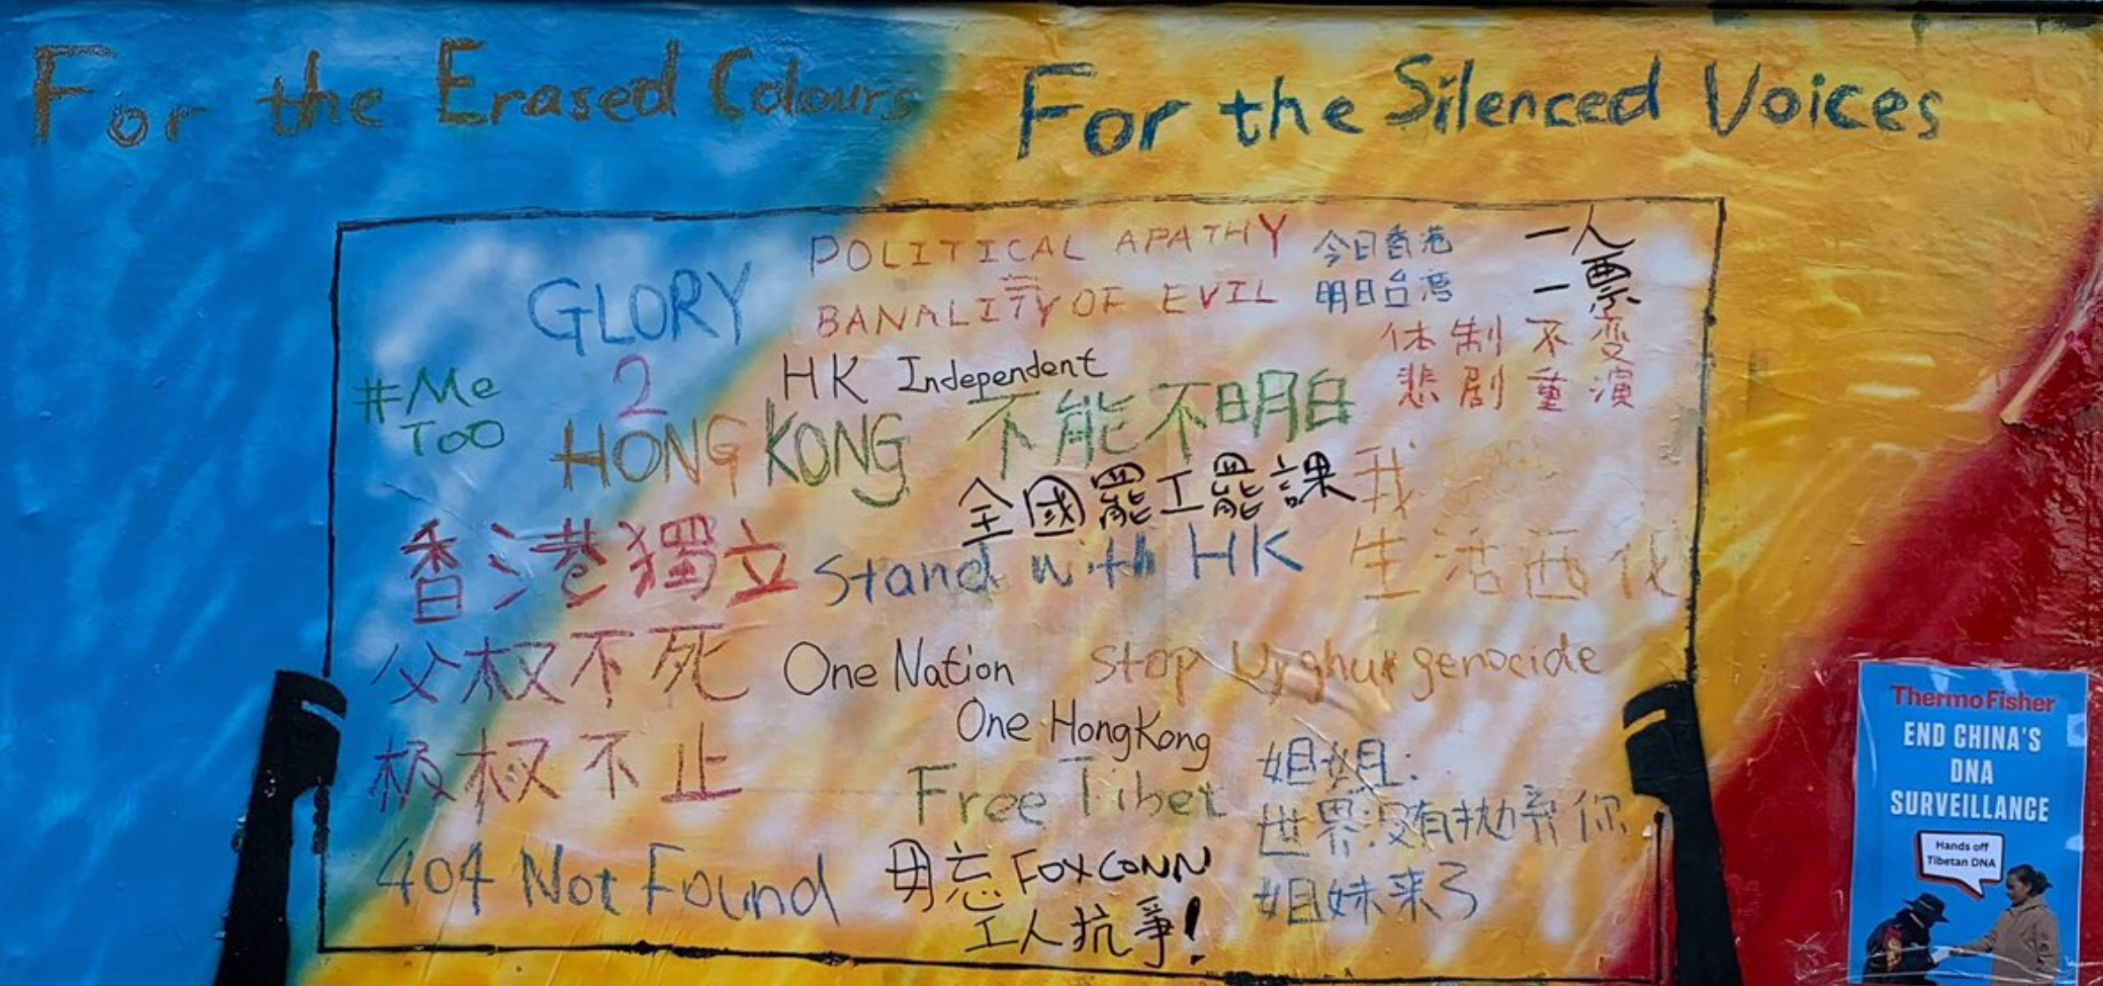 For the Erased Colours
For the Silenced Voices
POLITICAL APATHY
=
BANALITY OF EVIL
今日香港
明日台湾
一人
一票
GLORY
2
HONG KONG
#Me
Too
HK Independent
体制不变
悲剧重演
不能不明白
全國罷工罷課
我
生活西化
香港獨立
Stand with HK
父权不死
极权不止
One Nation
One HongKong
Stop Uyghur genocide
Free Tibet
姐姐:
世界没有抛弃你
姐妹来了
404 Not Found
毋忘 FOXCONN
工人抗爭!
ThermoFisher
END CHINA'S
DNA
SURVEILLANCE
Hands off
Tibetan DNA